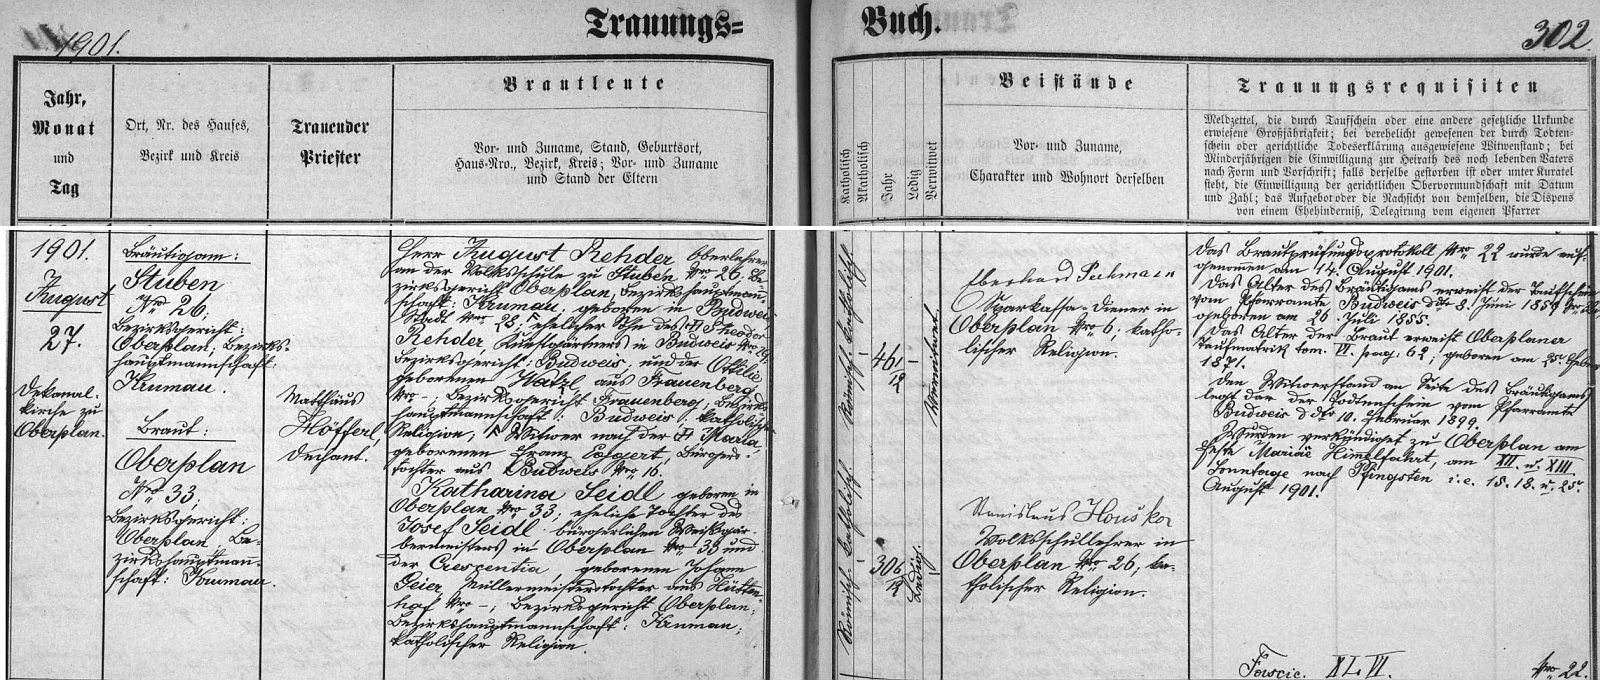 1901.
Trauungs=
Buch.
302.
Jahr,
Monat
und
Tag
Ort, Nr. des Hauses,
Bezirk und Kreis
Trauender
Priester
Brautleute
Vor- und Zuname, Stand, Geburtsort,
Haus-Nro., Bezirk, Kreis; Vor- und Zuname
und Stand der Eltern
Katholisch
Akatholisch
Jahr
Ledig
Verwitwet
Beistände
Vor- und Zuname,
Charakter und Wohnort derselben
Trauungsrequisiten
Meldzettel, die durch Taufschein oder eine andere gesetzliche Urkunde
erwiesene Großjährigkeit; bei verehelicht gewesenen der durch Todten-
schein oder gerichtliche Todeserklärung ausgewiesene Witwenstand; bei
Minderjährigen die Einwilligung zur Heirath des noch lebenden Vaters
nach Form und Vorschrift; falls derselbe gestorben ist oder unter Kuratel
steht, die Einwilligung der gerichtlichen Obervormundschaft mit Datum
und Zahl; das Aufgebot oder die Nachsicht von demselben, die Dispens
von einem Ehehinderniß, Delegirung vom eigenen Pfarrer
1901.
August
27.
Dekanal-
kirche zu
Oberplan.
Bräutigam:
Stuben
Nro 26;
Bezirksgericht:
Oberplan; Bezirks-
hauptmannschaft:
Krumau.
Braut:
Oberplan
Nro 33;
Bezirksgericht:
Oberplan, Be-
zirkshauptmann-
schaft: Krumau.
Matthäus
Höfferl,
Dechant.
Herr August Rehder Oberlehrer
an der Volksschule zu Stuben Nro 26, Be-
zirksgericht Oberplan, Bezirkshauptmann-
schaft: Krumau, geboren in Budweis
Stadt Nro 28; ehelicher Sohn des Theodor
Rehder, Kunstgärtners in Budweis
Bezirksgericht: Budweis, und der Ottilie
geborenen Watzl aus Frauenberg
Nro -; Bezirksgericht Frauenberg, Bezirks-
hauptmannschaft: Budweis; katholischer
Religion; Witwer nach der Maria,
geborenen Franz Eggert, Bürgers-
tochter aus Budweis Nro 16.
Katharina Seidl geboren in
Oberplan Nro 33; eheliche Tochter des
Josef Seidl bürgerlichen Weißgär-
bermeisters in Oberplan Nro 33 und
der Crescentia geborenen Johann
Geier, Müllermeisterstochter aus Hütten-
hof Nro -; Bezirksgericht Oberplan;
Bezirkshauptmannschaft: Krumau;
katholischer Religion.
Römisch-katholisch
46 1/12
Verwitwet.
Römisch-katholisch
30 6/12
Ledig.
Eberhard Pechmann
Sparkassa-Diener in
Oberplan Nro 6; katho-
lischer Religion.
Stanislaus Houška
Volksschullehrer in
Oberplan Nro 26; ka-
tholischer Religion.
Das Brautprüfungsprotokoll Nro 22 wurde auf-
genommen am 14. August 1901.
Das Alter des Bräutigams erweist der Taufschein
vom Pfarramte Budweis dto 8. Juni 1859
geboren am 26. Juli 1855.
Das Alter der Braut erweist Oberplaner
Taufmatrik tom. VI. pag. 62; geboren am
1871.
Den Witwerstand an Seite des Bräutigams
legt dar der Todtenschein vom Pfarramte
Budweis ddto 10. Februar 1899.
Wurden verkündiget zu Oberplan am
Feste Mariae Himelfahrt, am XII. u. XIII.
Sonntage nach Pfingsten i.e. 15. 18. u. 25.
August 1901.
Fascic. XLVI. Nro 22.